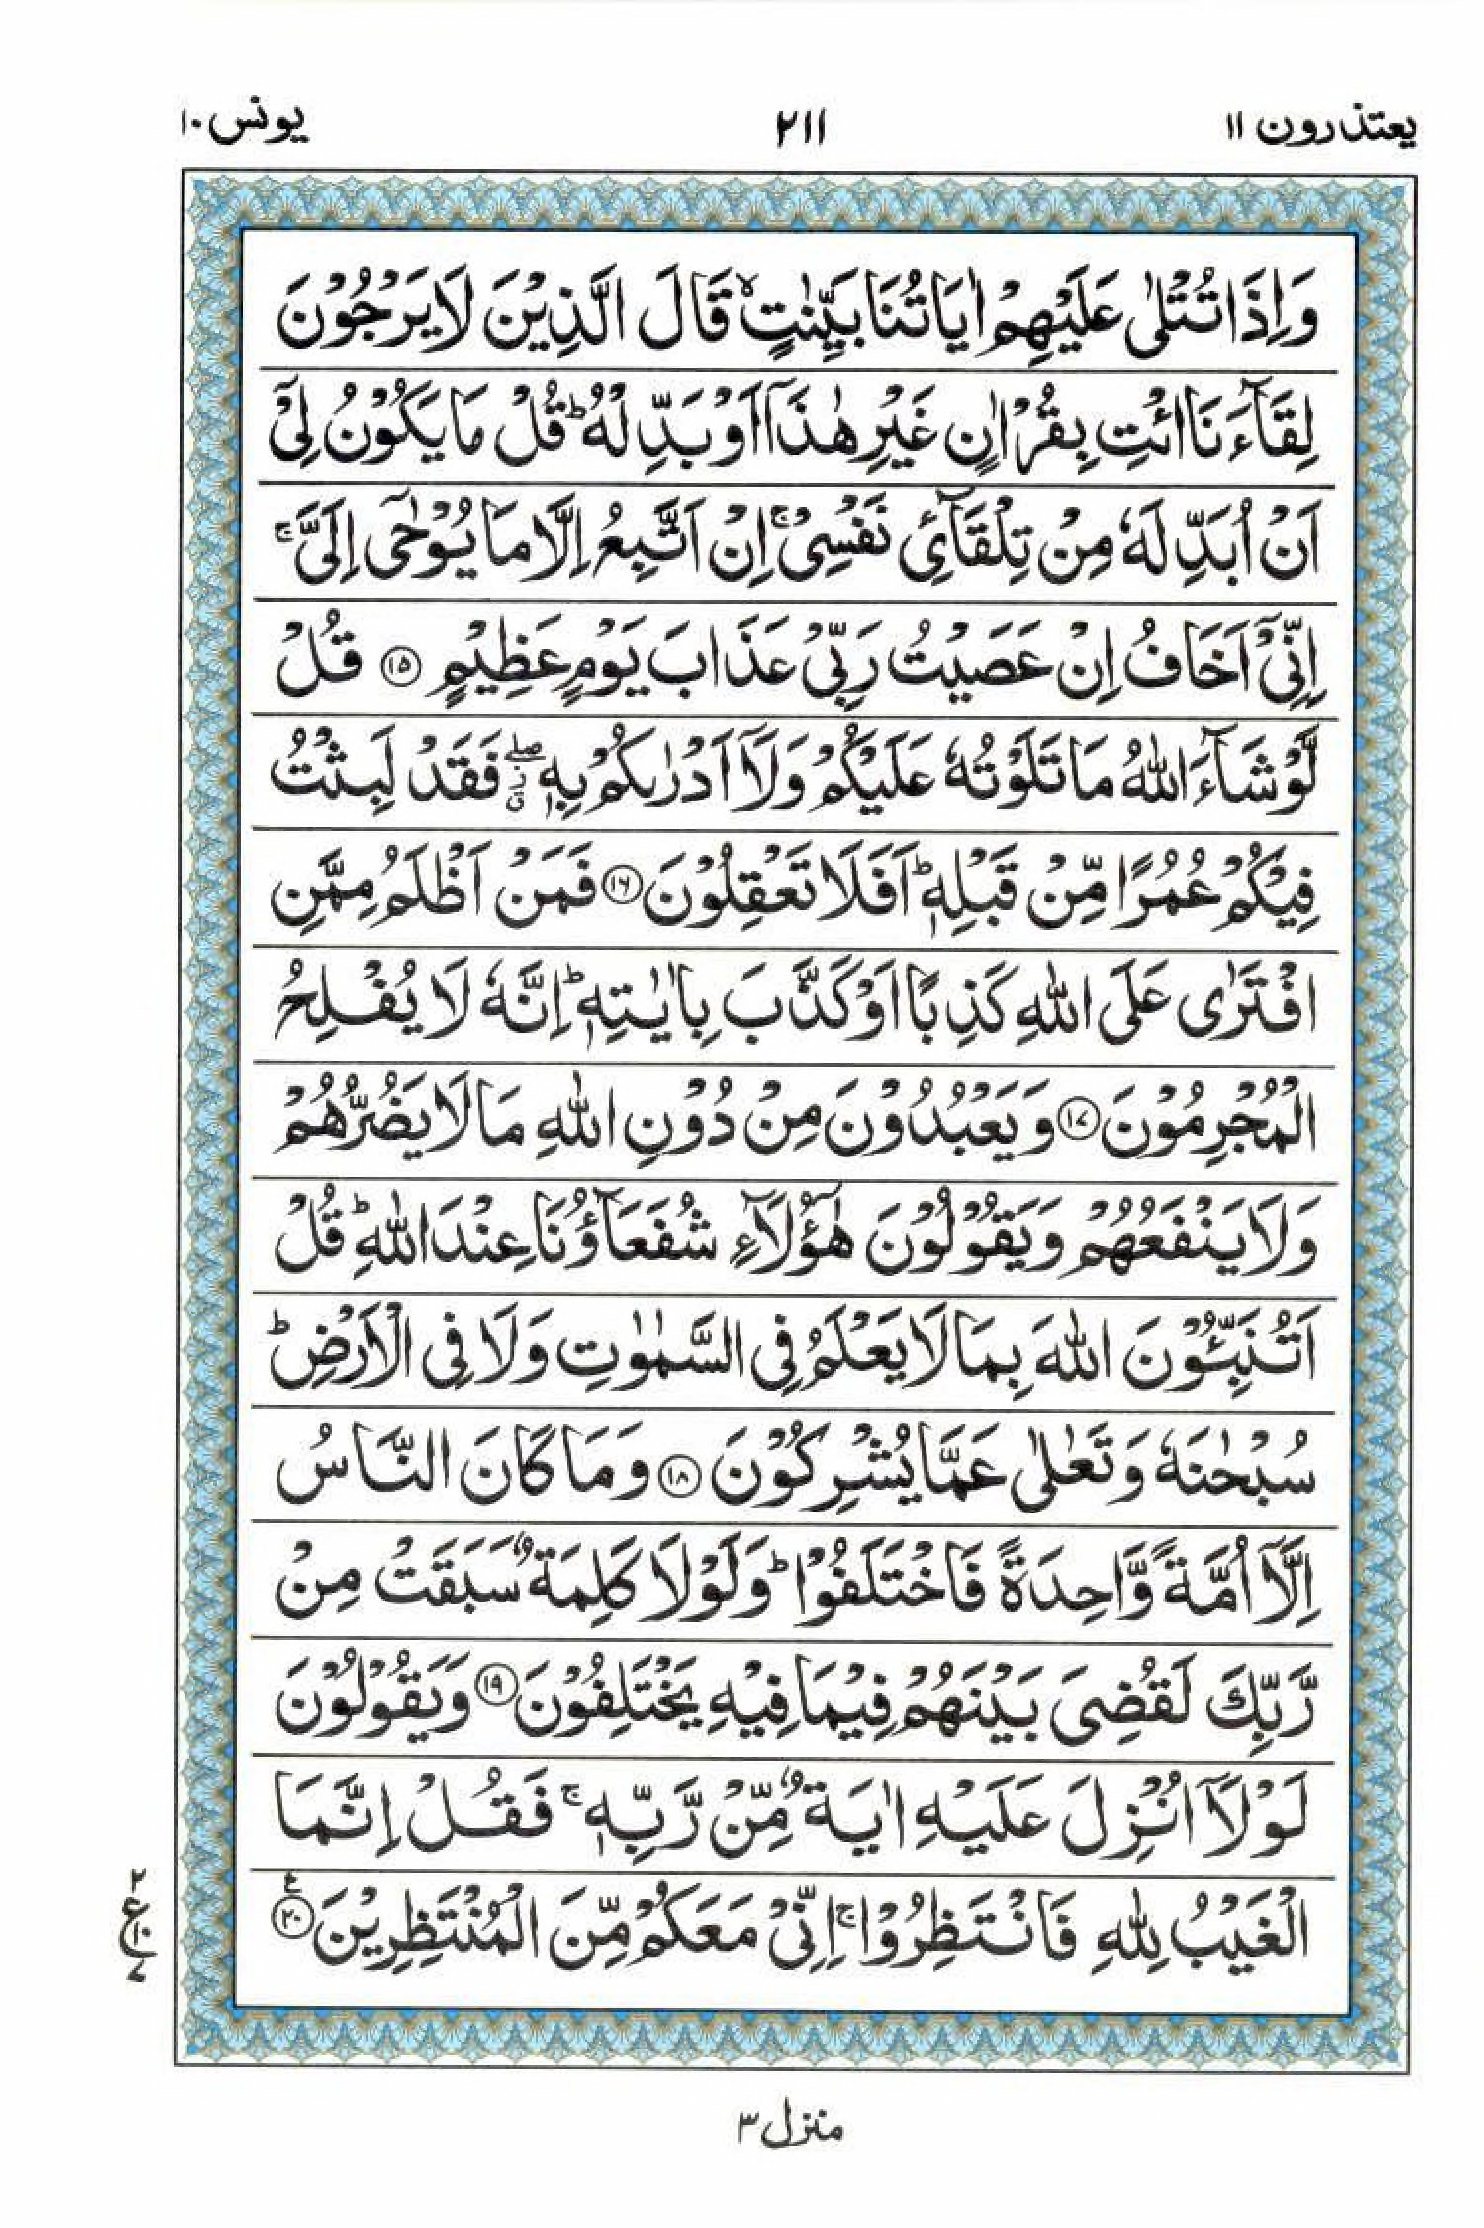 يعتذرون ١١
٢١١
يونس ١٠
وَاِذَا تُتْلٰى عَلَيْهِمْ اٰيَاتُنَا بَيِّنٰتٍ ۙ قَالَ الَّذِيْنَ لَا يَرْجُوْنَ
لِقَآءَنَا ائْتِ بِقُرْاٰنٍ غَيْرِ هٰذَآ اَوْ بَدِّلْهُ ؕ قُلْ مَا يَكُوْنُ لِيْۤ
اَنْ اُبَدِّلَهٗ مِنْ تِلْقَآئِ نَفْسِيْ ۚ اِنْ اَتَّبِعُ اِلَّا مَا يُوْحٰۤى اِلَيَّ ۚ
اِنِّيْۤ اَخَافُ اِنْ عَصَيْتُ رَبِّيْ عَذَابَ يَوْمٍ عَظِيْمٍ ۝١٥ قُلْ
لَّوْ شَآءَ اللّٰهُ مَا تَلَوْتُهٗ عَلَيْكُمْ وَلَاۤ اَدْرٰىكُمْ بِهٖ ۖز فَقَدْ لَبِثْتُ
فِيْكُمْ عُمُرًا مِّنْ قَبْلِهٖ ؕ اَفَلَا تَعْقِلُوْنَ ۝١٦ فَمَنْ اَظْلَمُ مِمَّنِ
افْتَرٰى عَلَى اللّٰهِ كَذِبًا اَوْ كَذَّبَ بِاٰيٰتِهٖ ؕ اِنَّهٗ لَا يُفْلِحُ
الْمُجْرِمُوْنَ ۝١٧ وَيَعْبُدُوْنَ مِنْ دُوْنِ اللّٰهِ مَا لَا يَضُرُّهُمْ
وَلَا يَنْفَعُهُمْ وَيَقُوْلُوْنَ هٰۤؤُلَآءِ شُفَعَآؤُنَا عِنْدَ اللّٰهِ ؕ قُلْ
اَتُنَبِّـُٔوْنَ اللّٰهَ بِمَا لَا يَعْلَمُ فِي السَّمٰوٰتِ وَلَا فِي الْاَرْضِ ؕ
سُبْحٰنَهٗ وَتَعٰلٰى عَمَّا يُشْرِكُوْنَ ۝١٨ وَمَا كَانَ النَّاسُ
اِلَّاۤ اُمَّةً وَّاحِدَةً فَاخْتَلَفُوْا ؕ وَلَوْلَا كَلِمَةٌ سَبَقَتْ مِنْ
رَّبِّكَ لَقُضِيَ بَيْنَهُمْ فِيْمَا فِيْهِ يَخْتَلِفُوْنَ ۝١٩ وَيَقُوْلُوْنَ
لَوْلَاۤ اُنْزِلَ عَلَيْهِ اٰيَةٌ مِّنْ رَّبِّهٖ ۚ فَقُلْ اِنَّمَا
الْغَيْبُ لِلّٰهِ فَانْتَظِرُوْا ۚ اِنِّيْ مَعَكُمْ مِّنَ الْمُنْتَظِرِيْنَ ۝٢٠ ع
٢
ع ١٠
٧
منزل ٣